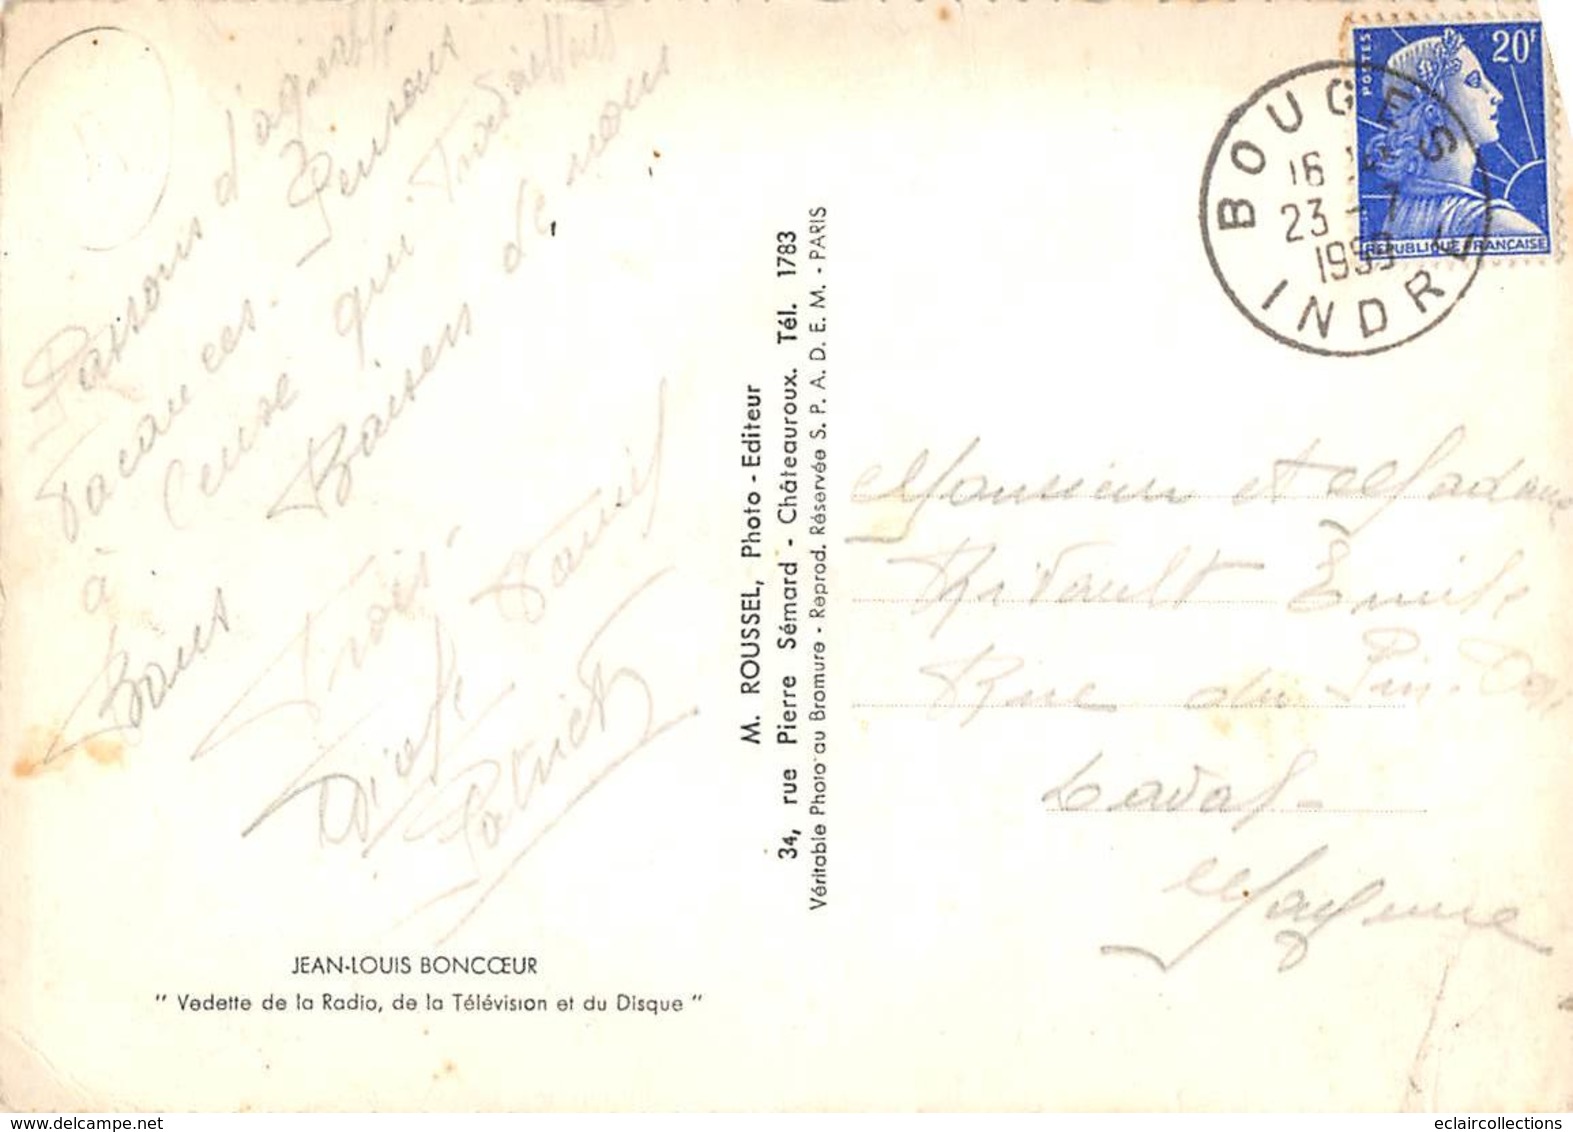 Passons d'agréables
vacances. Pensons
à ceux qui travaillent
Bons Baisers de nous
Trois.
Daniel
Patrick
M. ROUSSEL, Photo - Editeur
34, rue Pierre Sémard - Châteauroux. Tél. 1783
Véritable Photo au Bromure - Reprod. Réservée S. P. A. D. E. M. - PARIS
JEAN-LOUIS BONCŒUR
" Vedette de la Radio, de la Télévision et du Disque "
POSTES
20F
REPUBLIQUE FRANÇAISE
BOUGES
16 H
23 - 7
1959
INDRE
Monsieur et Madame
Rivault Emile
Rue du Pin-Doré
Laval -
Mayenne
www.delcampe.net
eclaircollections